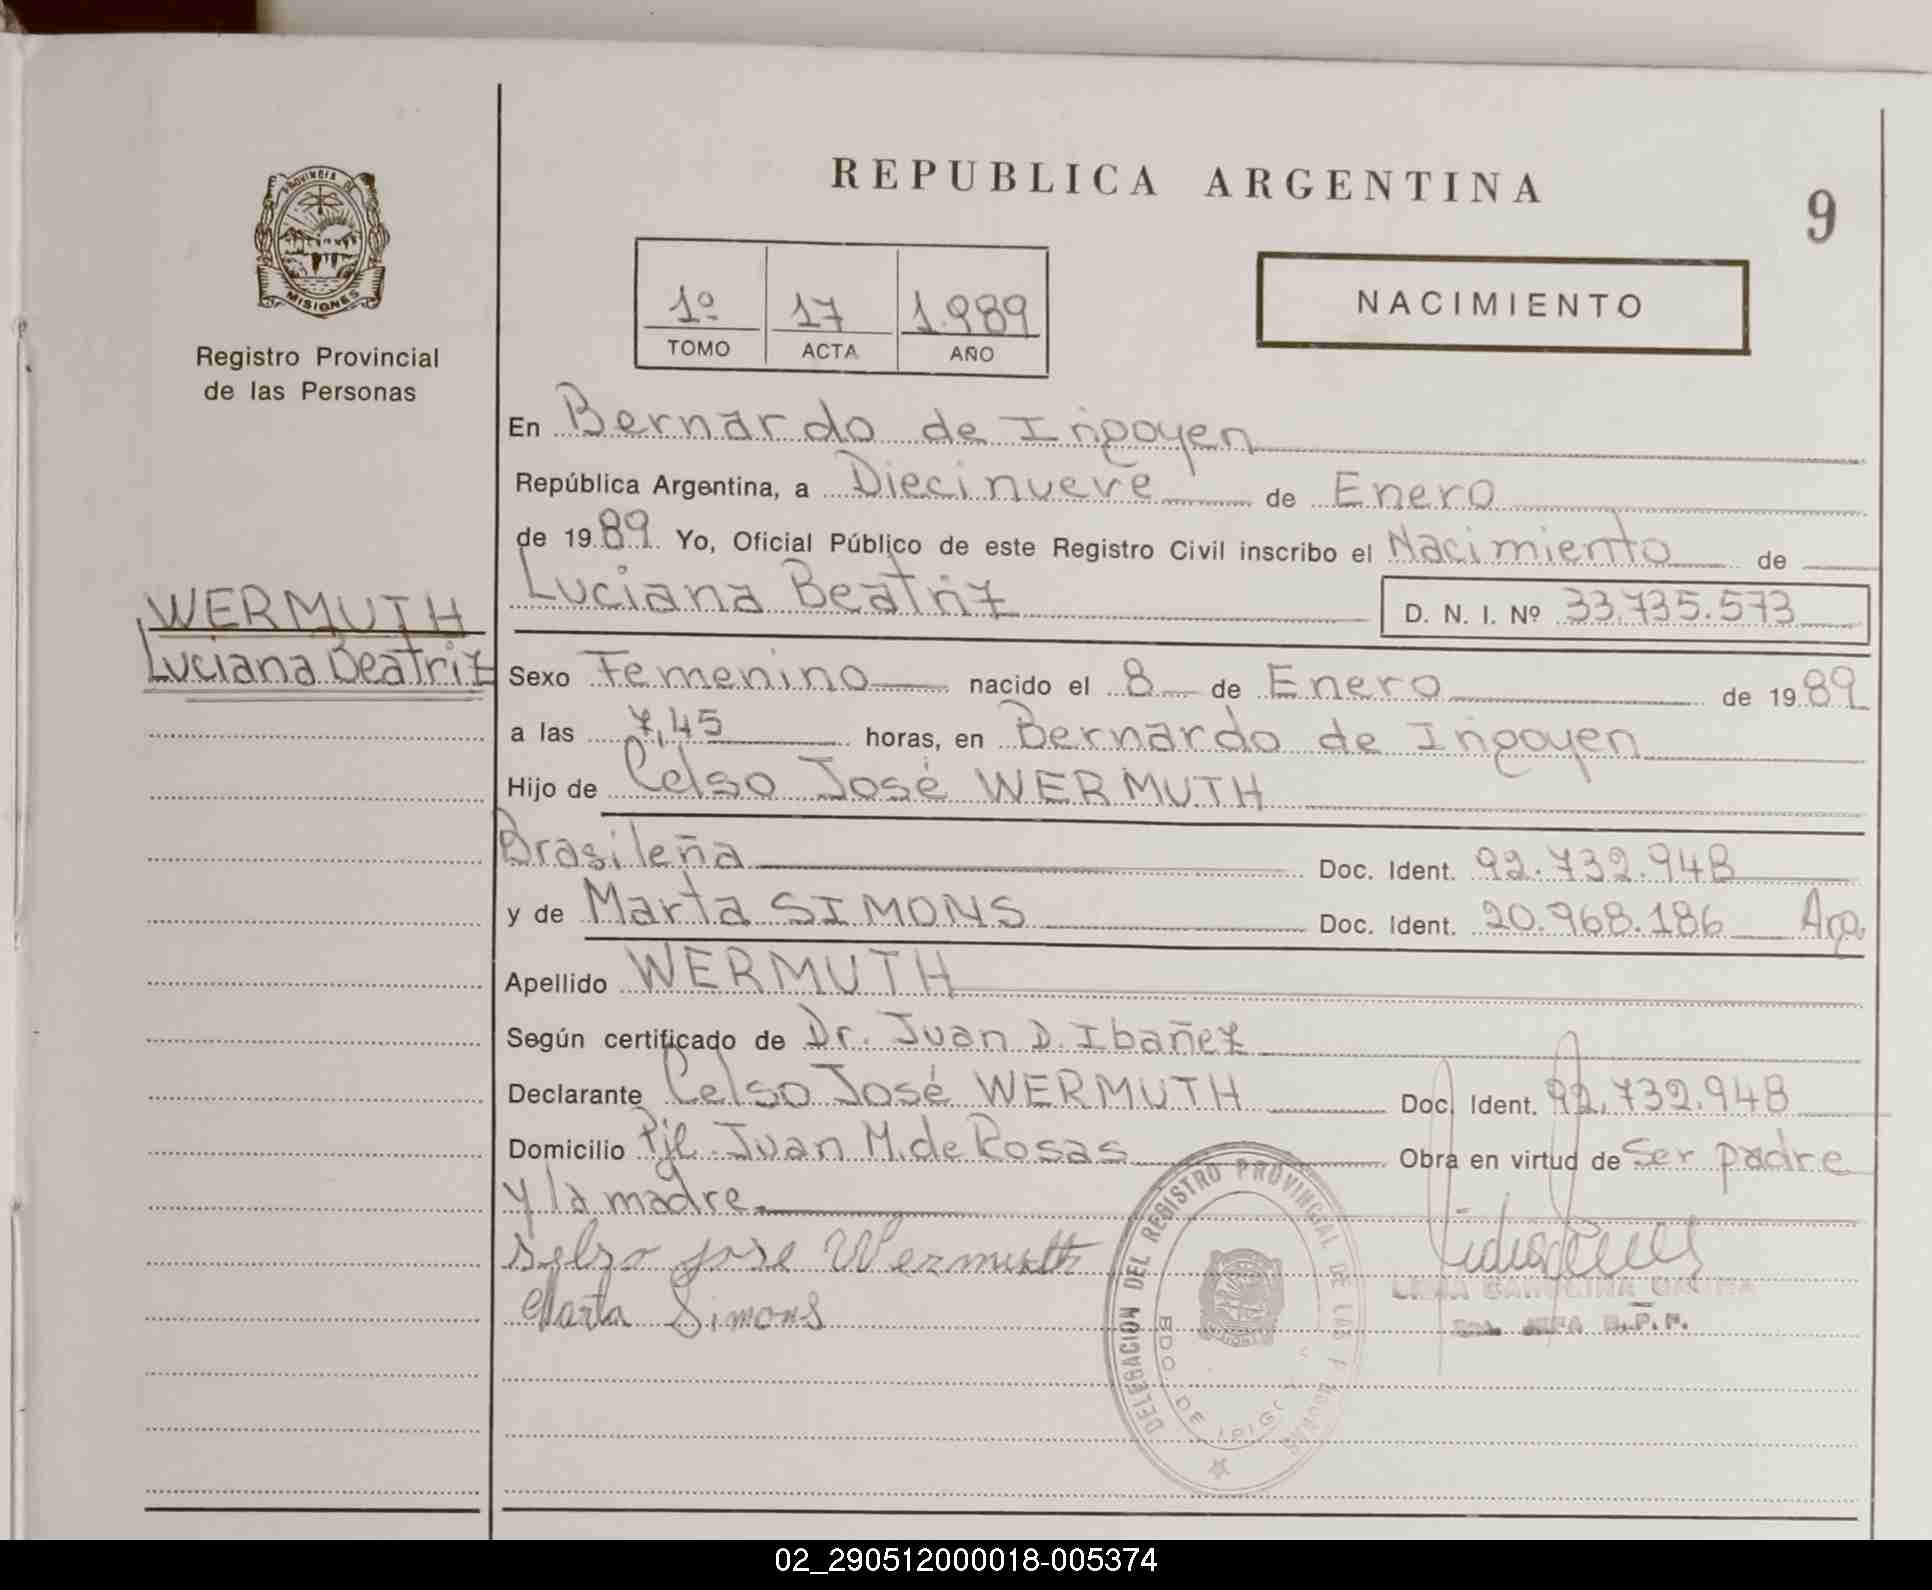 PROVINCIA DE
MISIONES
Registro Provincial
de las Personas
WERMUTH
Luciana Beatriz
REPUBLICA ARGENTINA
9
1º 17 1.989
TOMO ACTA AÑO
NACIMIENTO
En Bernardo de Irigoyen
República Argentina, a Diecinueve de Enero
de 1989 Yo, Oficial Público de este Registro Civil inscribo el Nacimiento de
Luciana Beatriz D. N. I. Nº 33.735.573
Sexo Femenino nacido el 8 de Enero de 1989
a las 7,45 horas, en Bernardo de Irigoyen
Hijo de Celso José WERMUTH
Brasileña Doc. Ident. 92.732.948
y de Marta SIMONS Doc. Ident. 20.968.186 Arg
Apellido WERMUTH
Según certificado de Dr. Juan D. Ibañez
Declarante Celso José WERMUTH Doc. Ident. 92.732.948
Domicilio Pje. Juan M. de Rosas Obra en virtud de Ser padre
y la madre.
Selso jose Wermuth
Marta Simons
DELEGACION DEL REGISTRO PROVINCIAL DE LAS
BDO. DE
R.P.P.
02_290512000018-005374